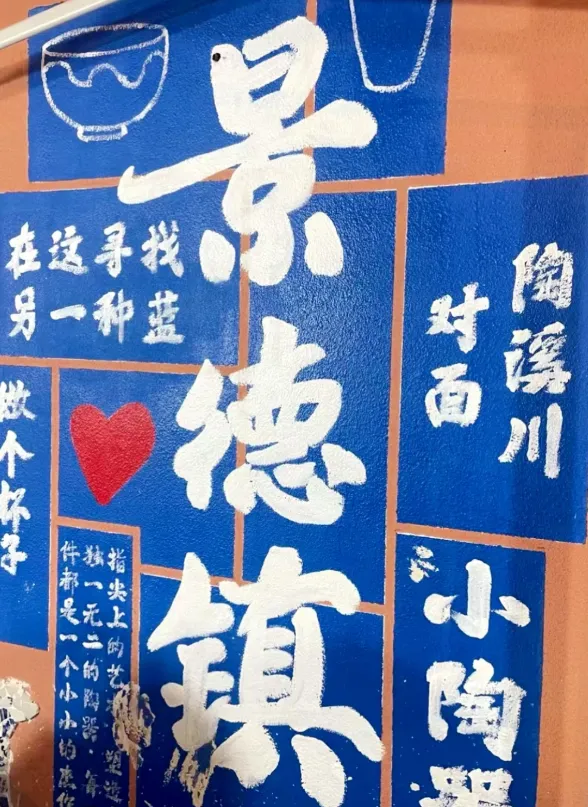 景德镇
在这寻找
另一种蓝
陶溪川
对面
做个杯子
指尖上的艺 塑造
独一无二的陶器·每
件都是一个小小的
小陶器